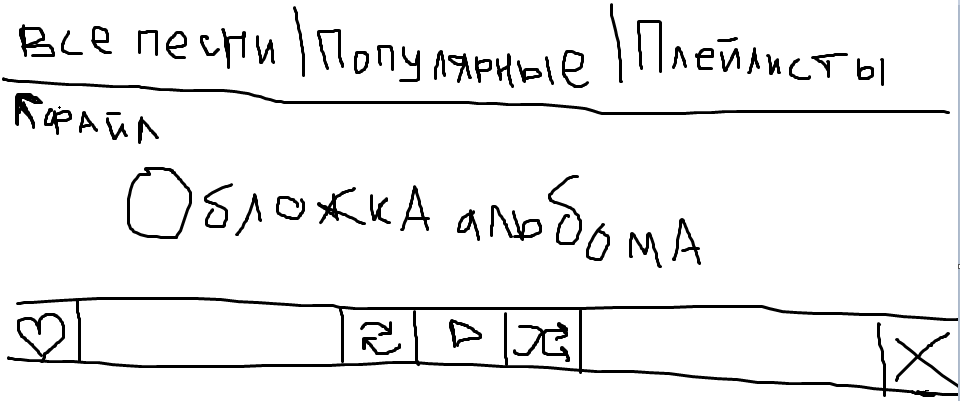 Все песни | Популярные | Плейлисты
Файл
Обложка альбома